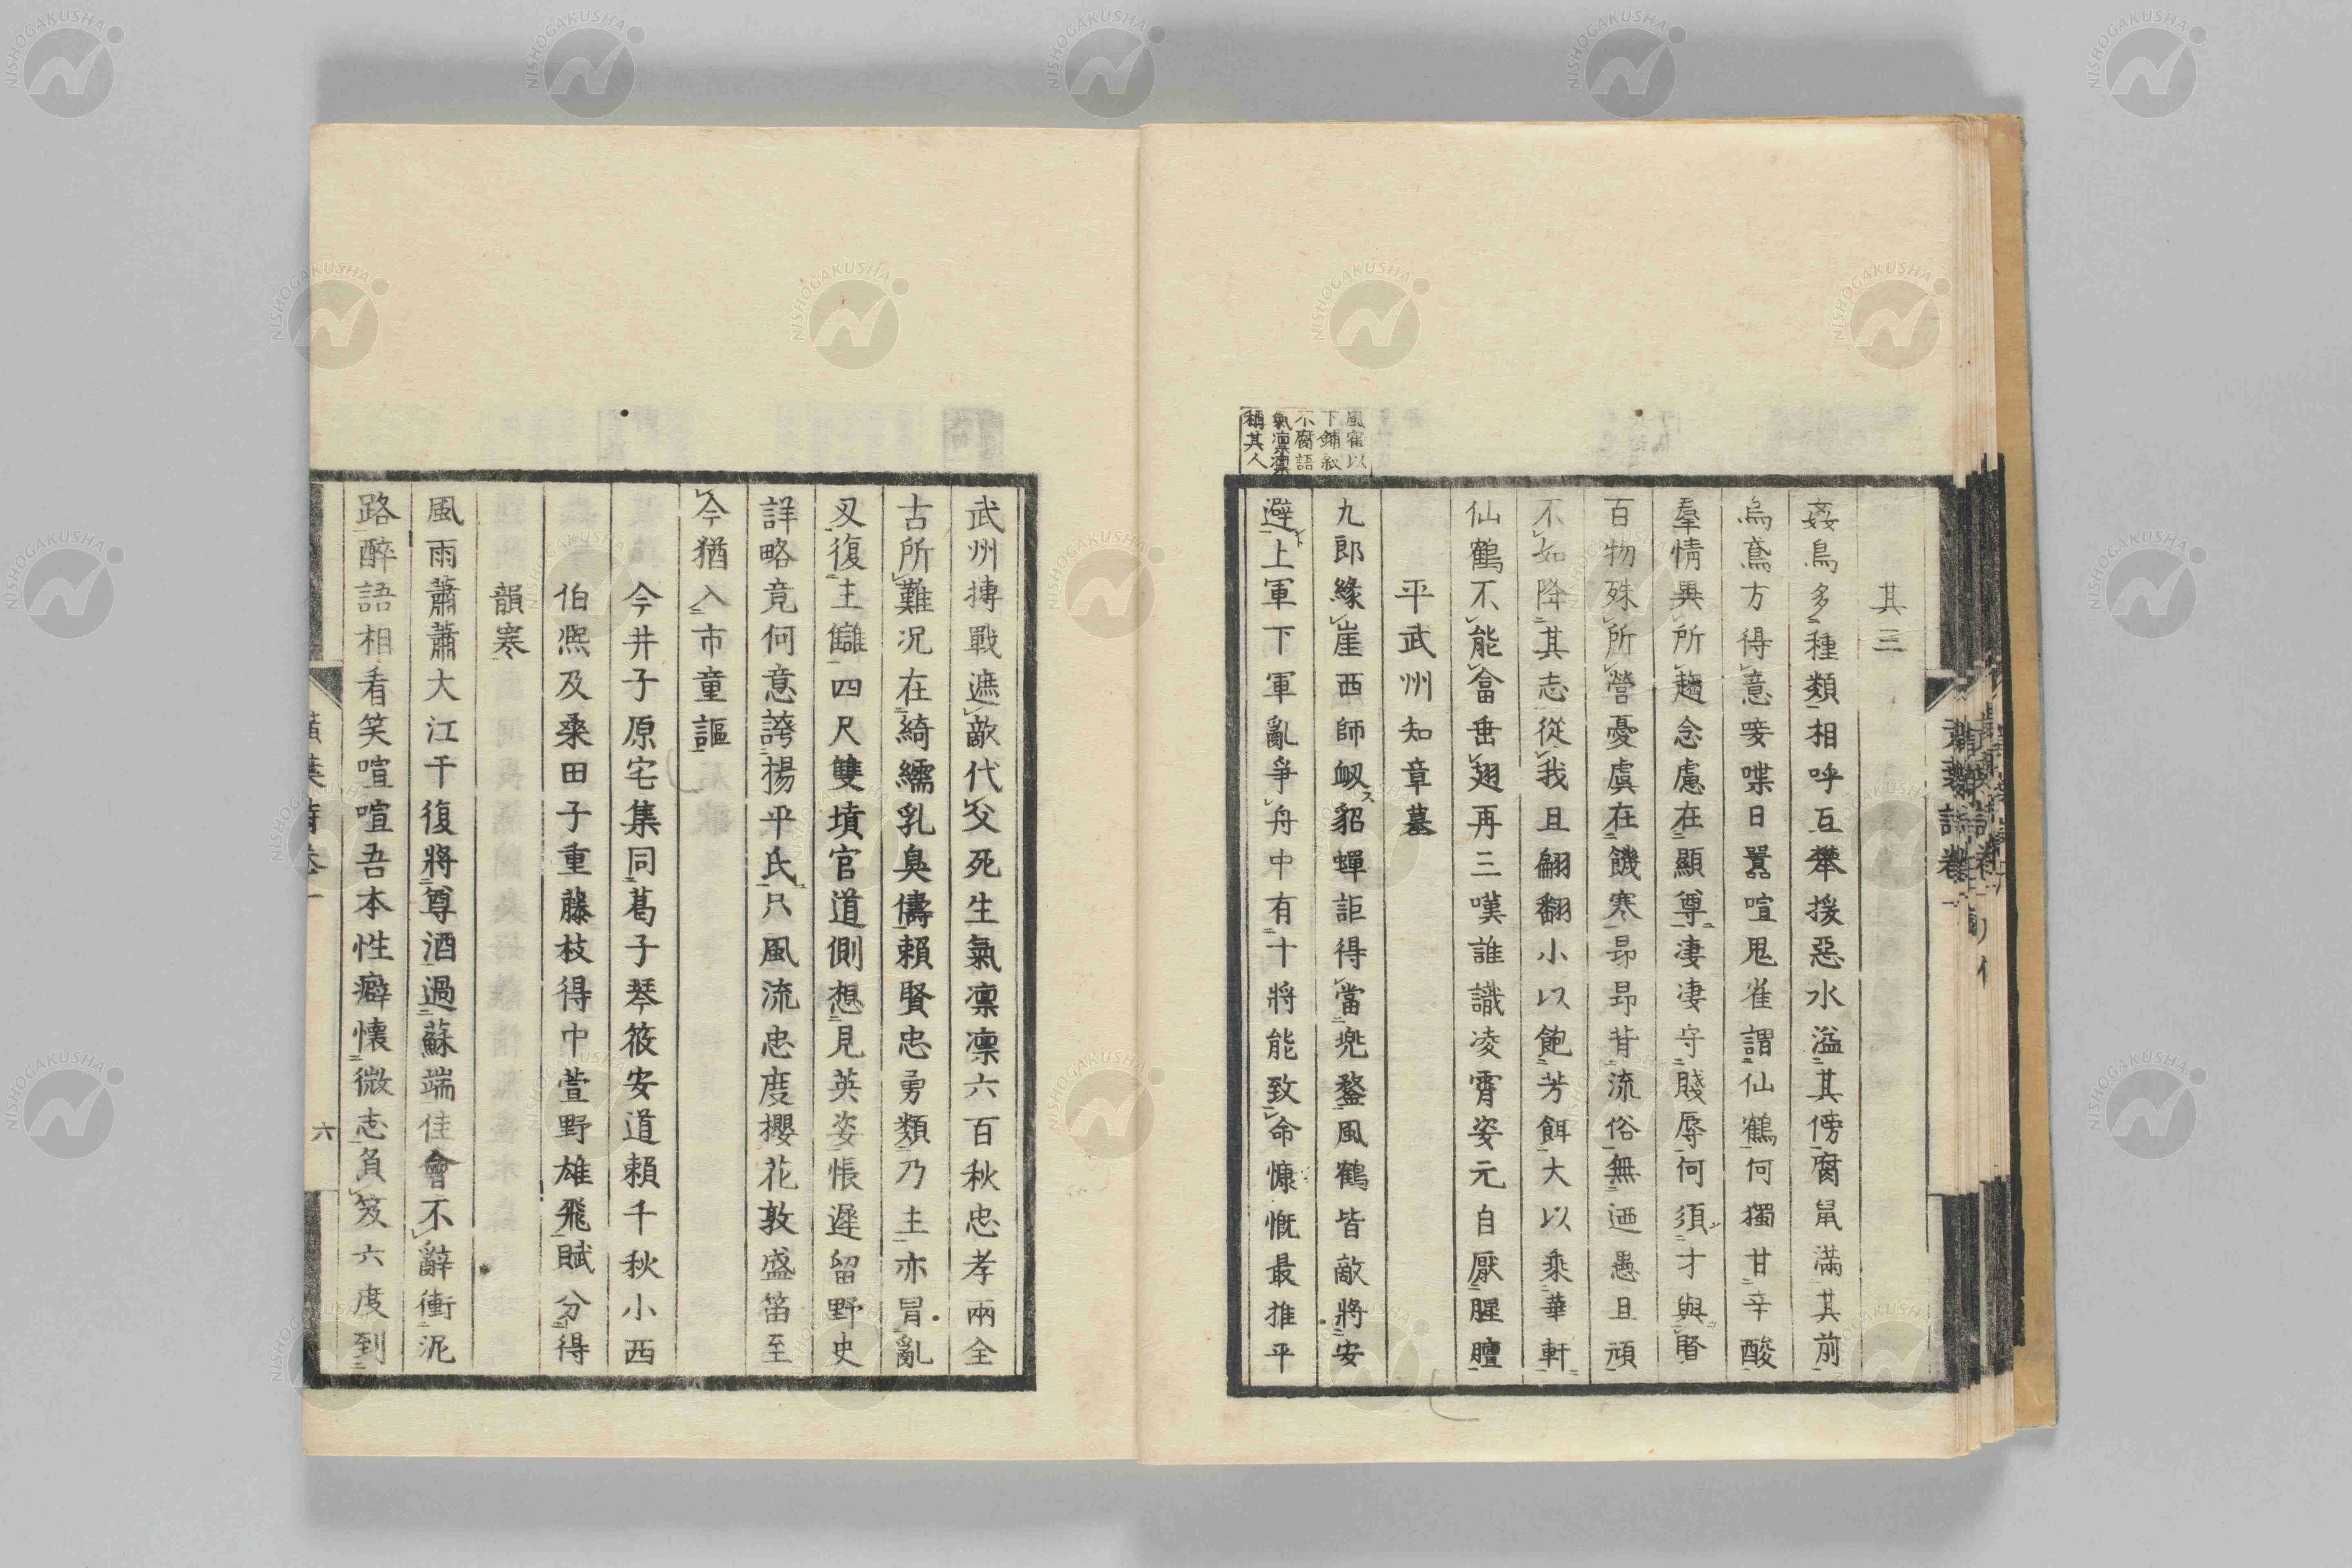 其三
姦鳥多種類相呼互攀援惡水溢其傍腐鼠滿其前
烏鳶方得意唼喋日囂喧鳧雀謂仙鶴何獨甘辛酸
羣情異所趨念慮在顯尊凄凄守賤辱何須才與賢
百物殊所營憂虞在饑寒昴昴背流俗無迺愚且頑
不如降其志從我且翩翻小以飽芳餌大以乘華軒
仙鶴不能畲垂翅再三嘆誰識凌霄姿元自厭腥膻
平武州知章墓
九郎緣崖西師衂貂蟬詎得當兜鍪風鶴皆敵將安
避上軍下軍亂爭舟中有十將能致命慷慨最推平
風寉以
下鋪敘
不腐語
氣凛凛
稱其人
武州搏戰遮敵代父死生氣凛凛六百秋忠孝兩全
古所難况在綺繻乳臭儔賴賢忠勇類乃主亦冒亂
刄復主讎四尺雙墳官道側想見英姿悵遲留野史
詳略竟何意誇揚平氏只風流忠度櫻花敦盛笛至
今猶入市童謳
今井子原宅集同葛子琴筱安道賴千秋小西
伯熙及桑田子重藤枝得中萱野雄飛賦分得
韻寒
風雨蕭蕭大江干復將尊酒過蘇端佳會不辭衝泥
路醉語相看笑喧喧吾本性癖懷微志負笈六度到
六
NISHOGAKUSHA